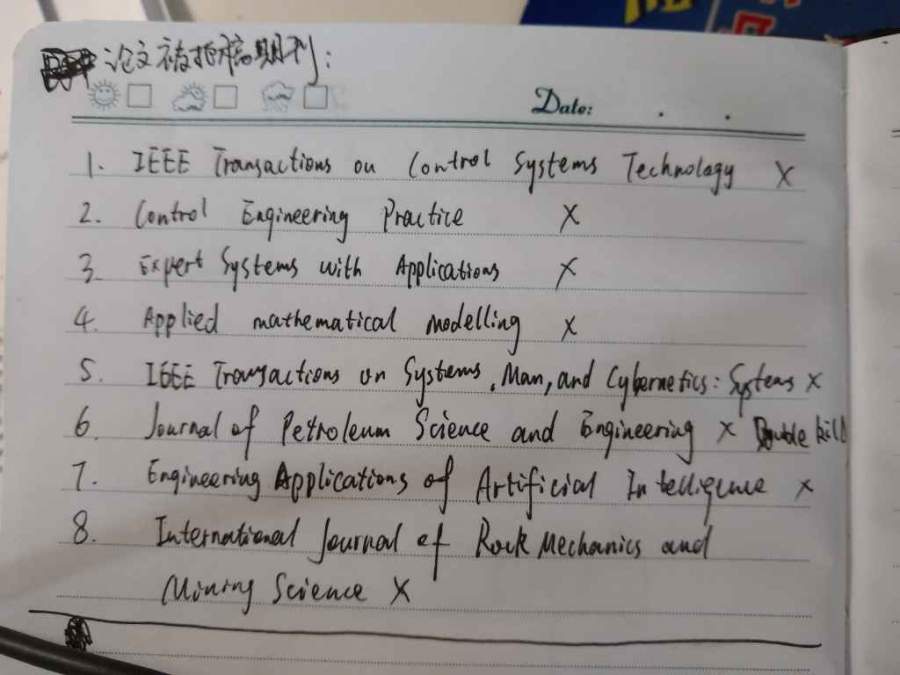 论文被拒稿期刊:
Date: . .
1. IEEE Transactions on Control Systems Technology X
2. Control Engineering Practice X
3. Expert Systems with Applications X
4. Applied mathematical modelling X
5. IEEE Transactions on Systems, Man, and Cybernetics: Systems X
6. Journal of Petroleum Science and Engineering X Double kill
7. Engineering Applications of Artificial Intelligence X
8. International Journal of Rock Mechanics and
Mining Science X